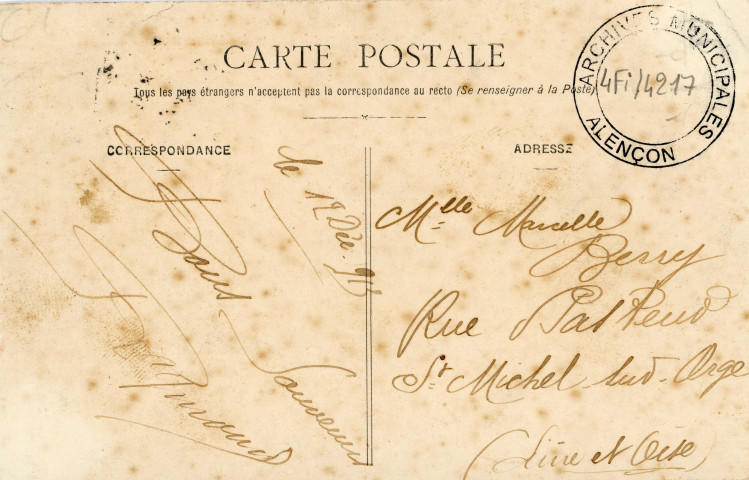 CARTE POSTALE
Tous les pays étrangers n'acceptent pas la correspondance au recto (Se renseigner à la Poste)
ARCHIVES MUNICIPALES
4Fi/4217
ALENÇON
CORRESPONDANCE
le 12 Déc.
Bons
Souvenirs
ADRESSE
Mlle Marcelle
Berry
Rue Pasteur
St Michel sur-Orge
(Seine et Oise)